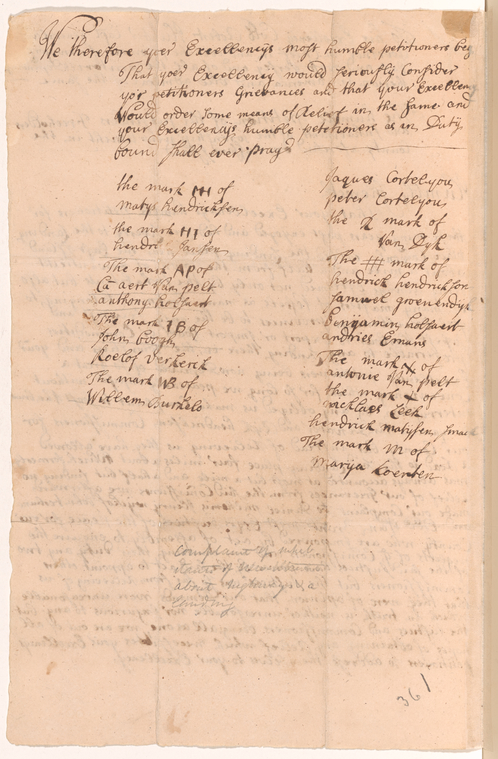 We therefore yoer Excellencijs most humble petitioners beg
That yoer Excellency would seriously Consider
yor petitioners Grievances and that your Excellency
Would order some means of Relief in the same and
your Excellencijs humble petitioners as in Duty
bound shall ever pray
the mark HH of
matys hendricksen
the mark HI of
hendri Jansen
The mark AP of
aert Van pelt
anthony Holsaert
The mark IB of
John boogh
Roelof Verkerck
The mark WB of
Willem Burkelo
Jaques Cortelyou
peter Cortelyou
the mark of
Van Dyk
The mark of
hendrick hendrickson
Samuel groenendyk
Benyamin holsaert
andries Emans
The mark X of
antonie Van pelt
the mark + of
nicklaes
hendrick matysen
The mark m of
marya Koerten
Complaint of
about
361